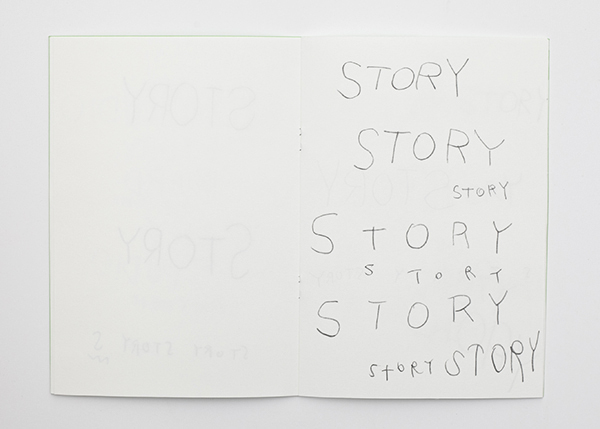 STORY
STORY
STORY
STORY
STORY
STORY
STORY STORY